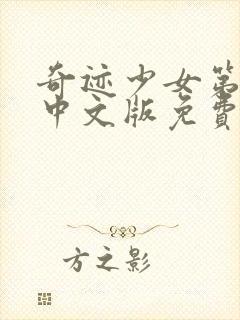 奇迹少女第
中文版免费
方之影